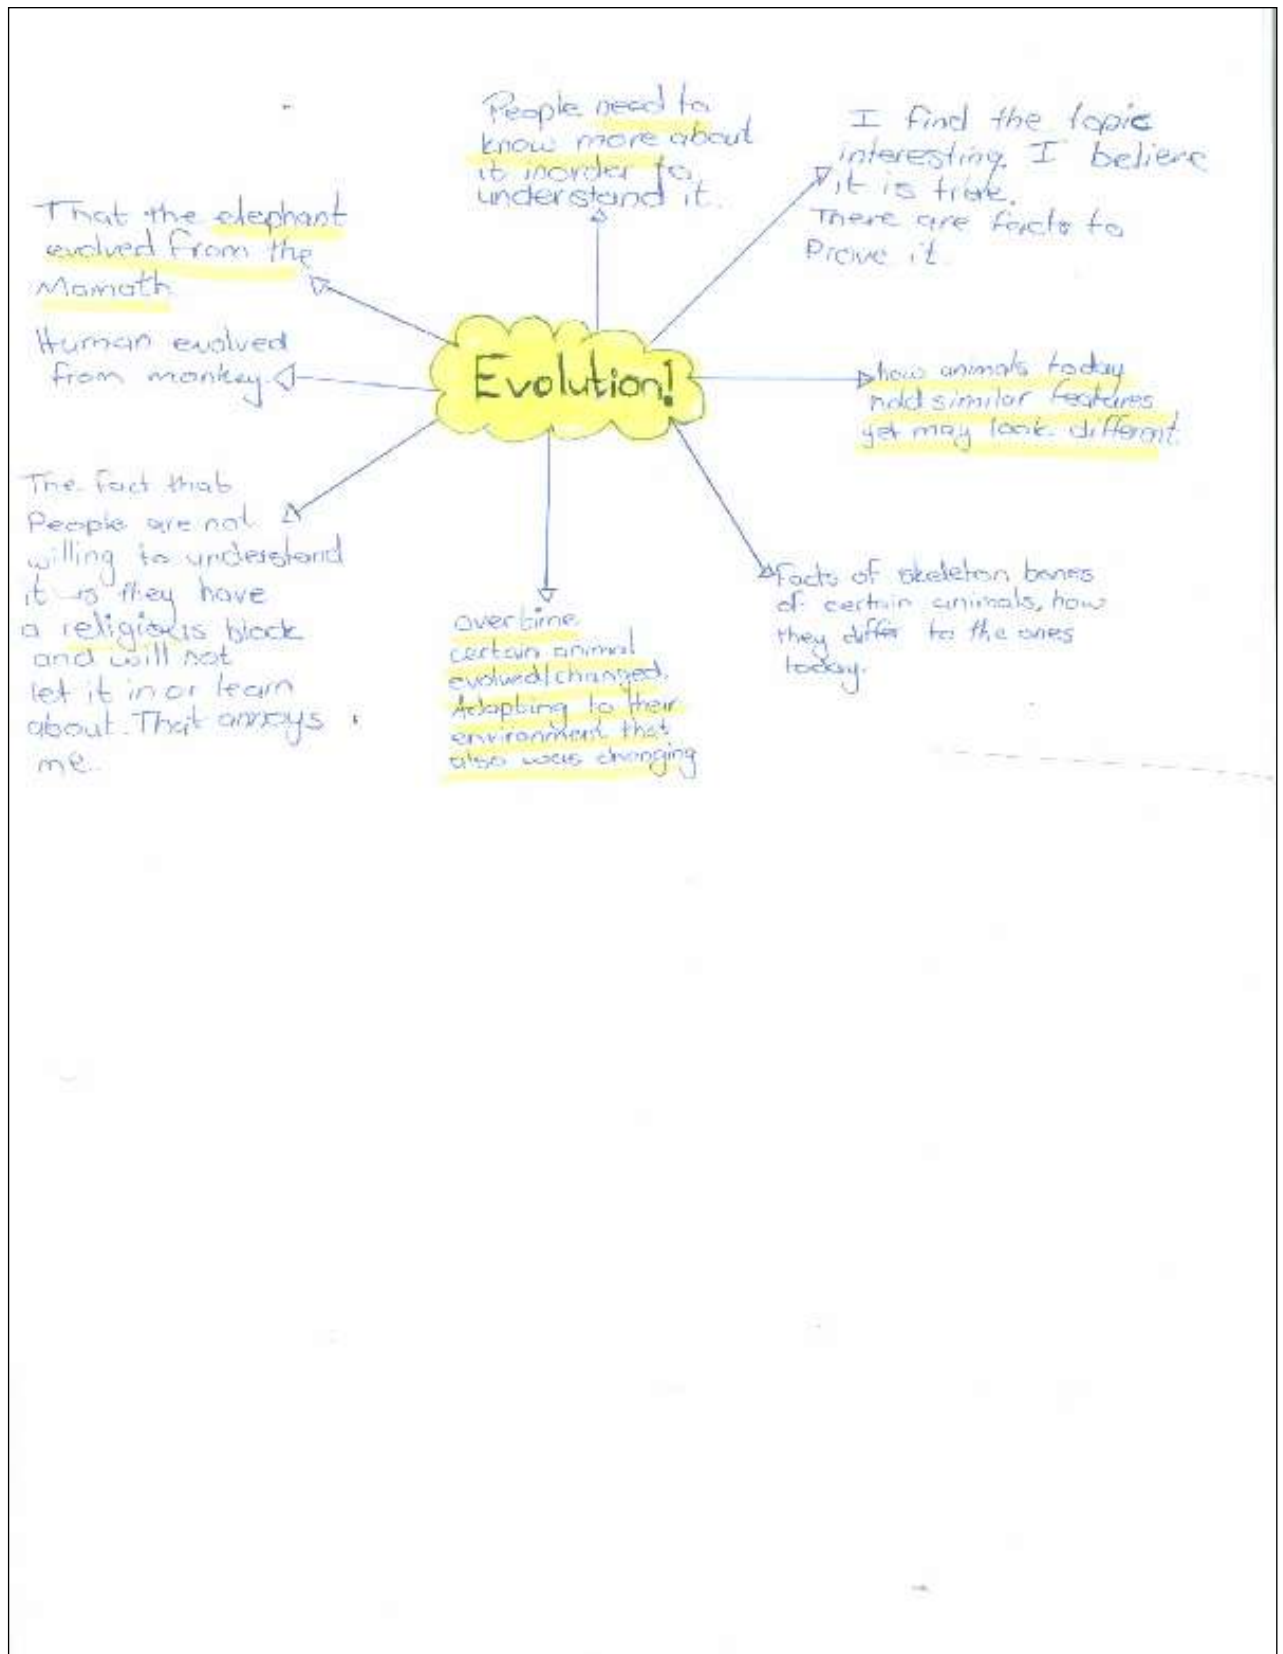 People need to
know more about
it inorder to
understand it.
I find the topic
interesting. I believe
it is true.
There are facts to
Prove it.
That the elephant
evolved from the
Mamoth
Human evolved
from monkey.
Evolution!
how animals today
hold similar features
yet may look different.
The fact that
People are not
willing to understand
it is they have
a religious block
and will not
let it in or learn
about. That annoys
me.
overtime
certain animal
evolved/changed.
Adapting to their
environment that
also was changing
Facts of skeleton bones
of certain animals, how
they differ to the ones
today.